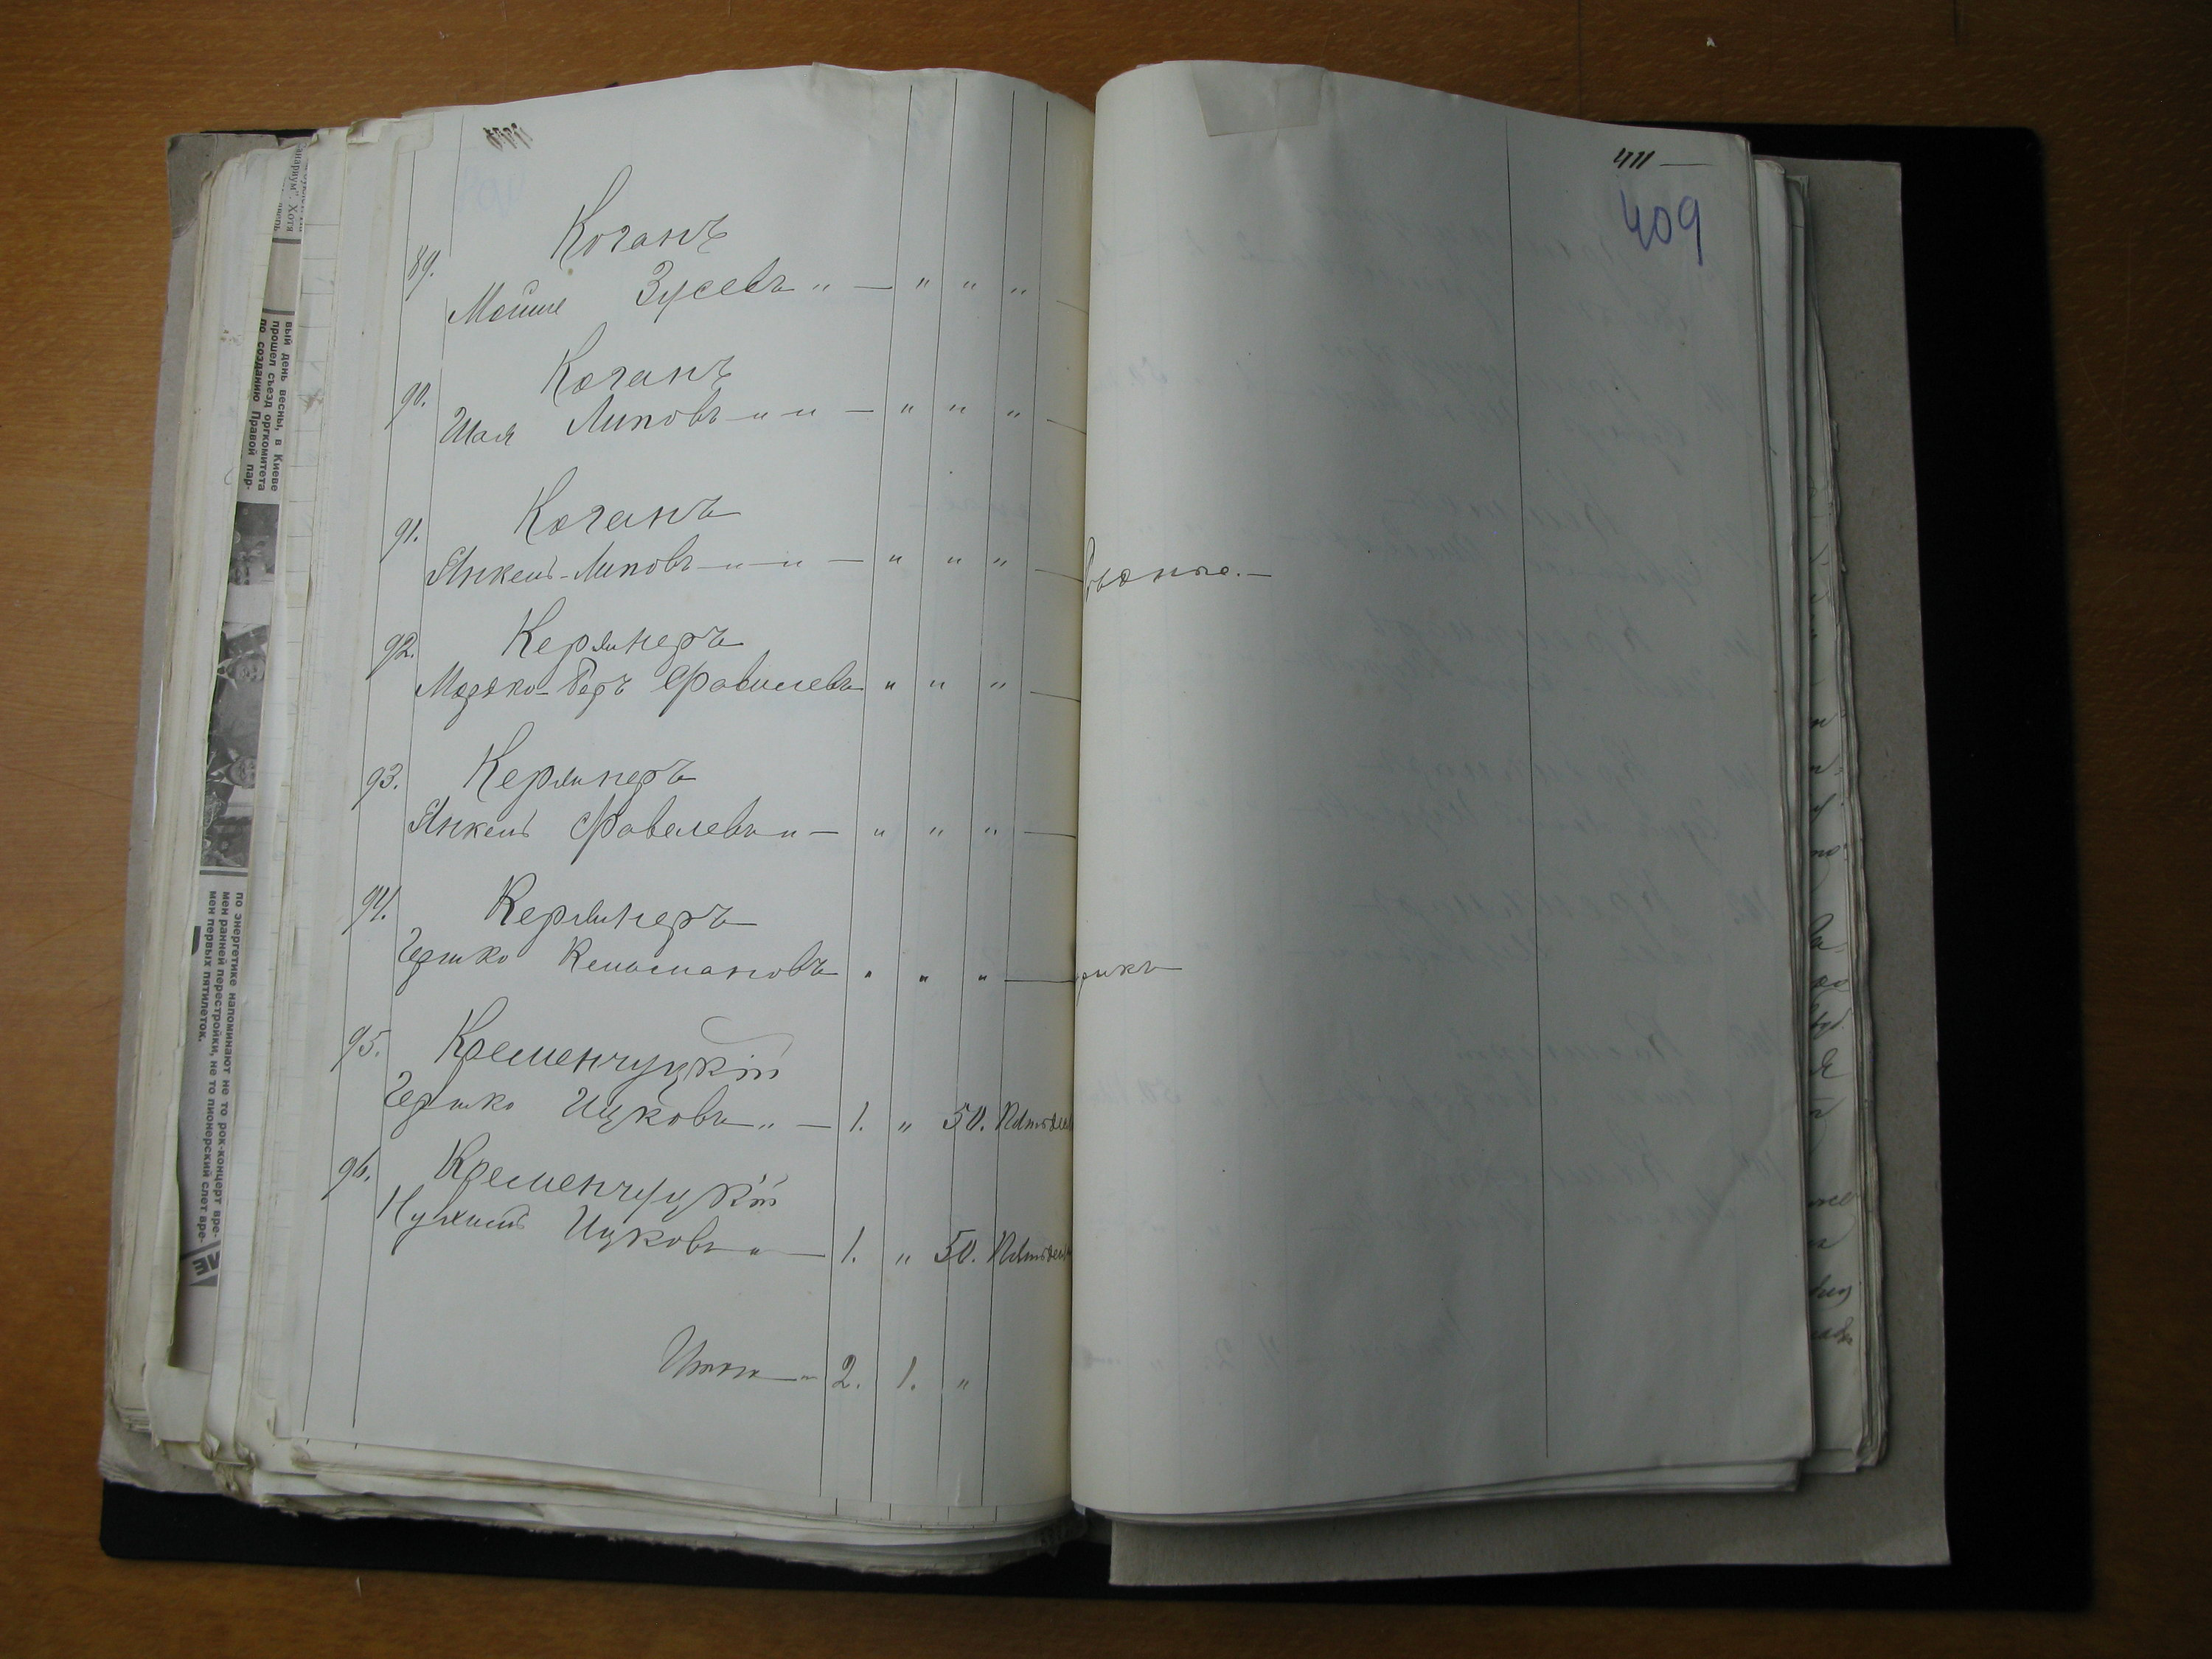 89. Коганъ
Мойше Зусевъ " — " " "
90. Коганъ
Шая Липовъ — " — " — " " "
91. Коганъ
Янкель-Липовъ — " — " — " " "
92. Керянеръ
Мордко-Беръ Фавилевъ " " "
93. Керянеръ
Янкель Фавелевъ " — " " "
94. Керянеръ
Гершко Кельмановъ " " " —
95. Кременчуцкій
Гершко Ицковъ " — 1. " 50.
96. Кременчуцкій
Нухимъ Ицковъ " — 1. " 50.
Итого — " 2. 1. "
411 —
409
вый день весны, в Киеве
прошел съезд оргкомитета
по созданию Правой пар-
по энергетике напоминают не то рок-концерт вре-
мен ранней перестройки, не то пионерский слет вре-
мен первых пятилеток.